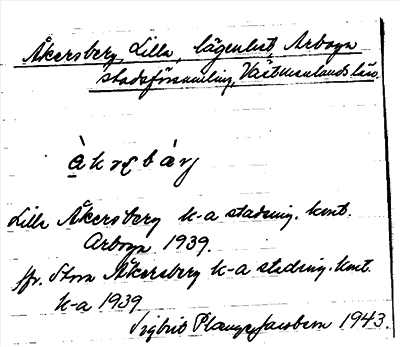 Åkersberg, Lilla, lägenhet, Arboga
stadsförsamling, Västmanlands län.
Lilla Åkersberg k-a stadsing. kont.
Arboga 1939.
Jfr. Stora Åkersberg k-a stadsing. kont.
k-a 1939
Sigbrit Plænge Jacobson 1943.